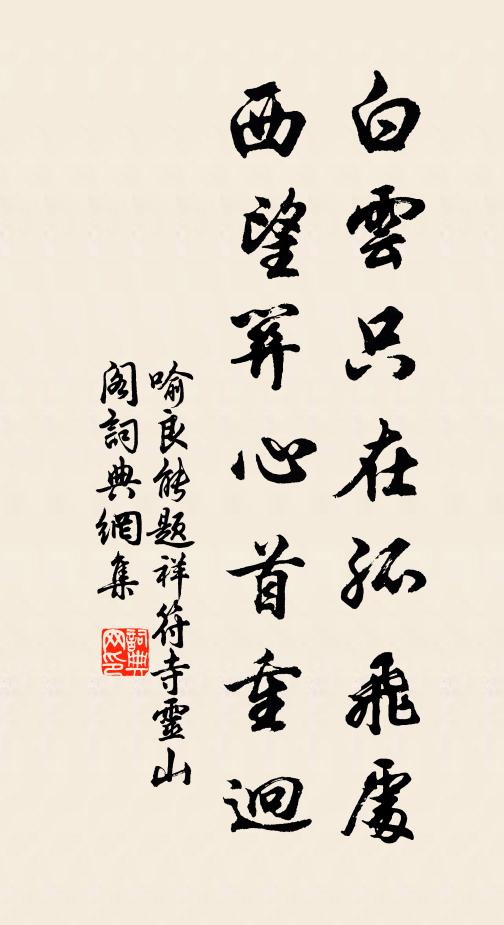 白雲只在孤飛處
西望關心首重迴
喻良能題祥符寺靈山
閣詞典網集
詞典
網印